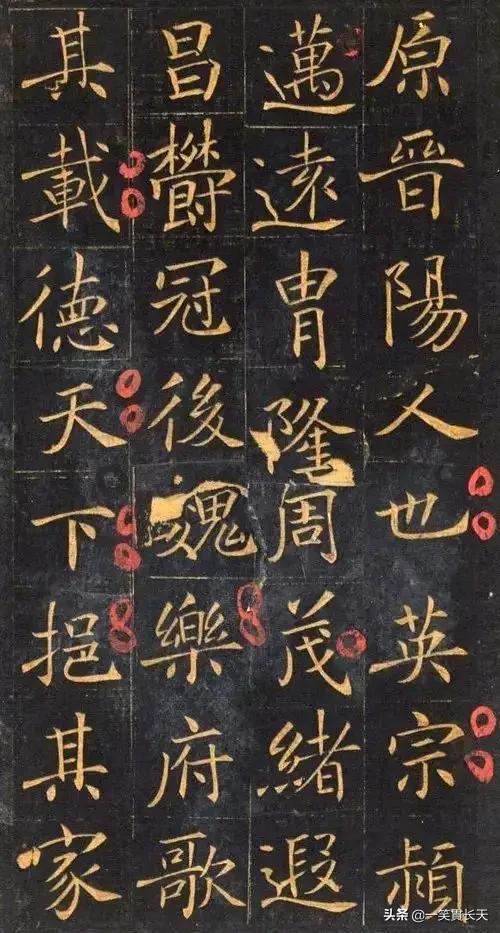 原晉陽人也英宗頴
邁遠胄隆周茂緒遐
昌欝冠後魏樂府歌
其載德天下挹其家
头条 @一笑贯长天